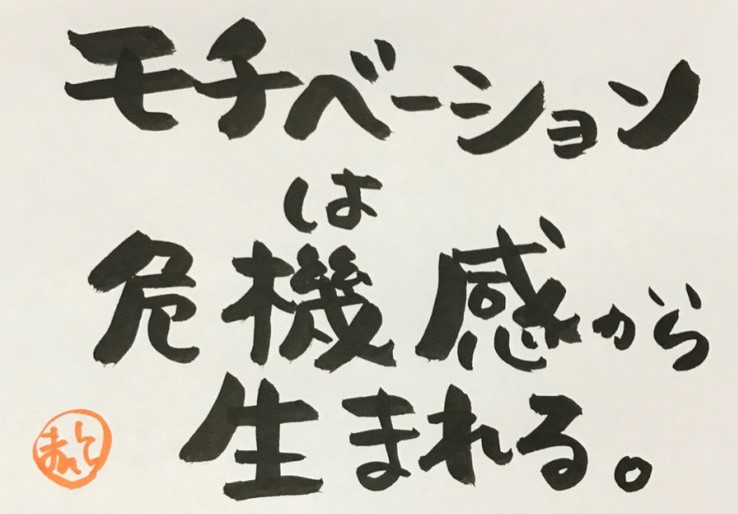 モチベーション
は
危機感から
生まれる。